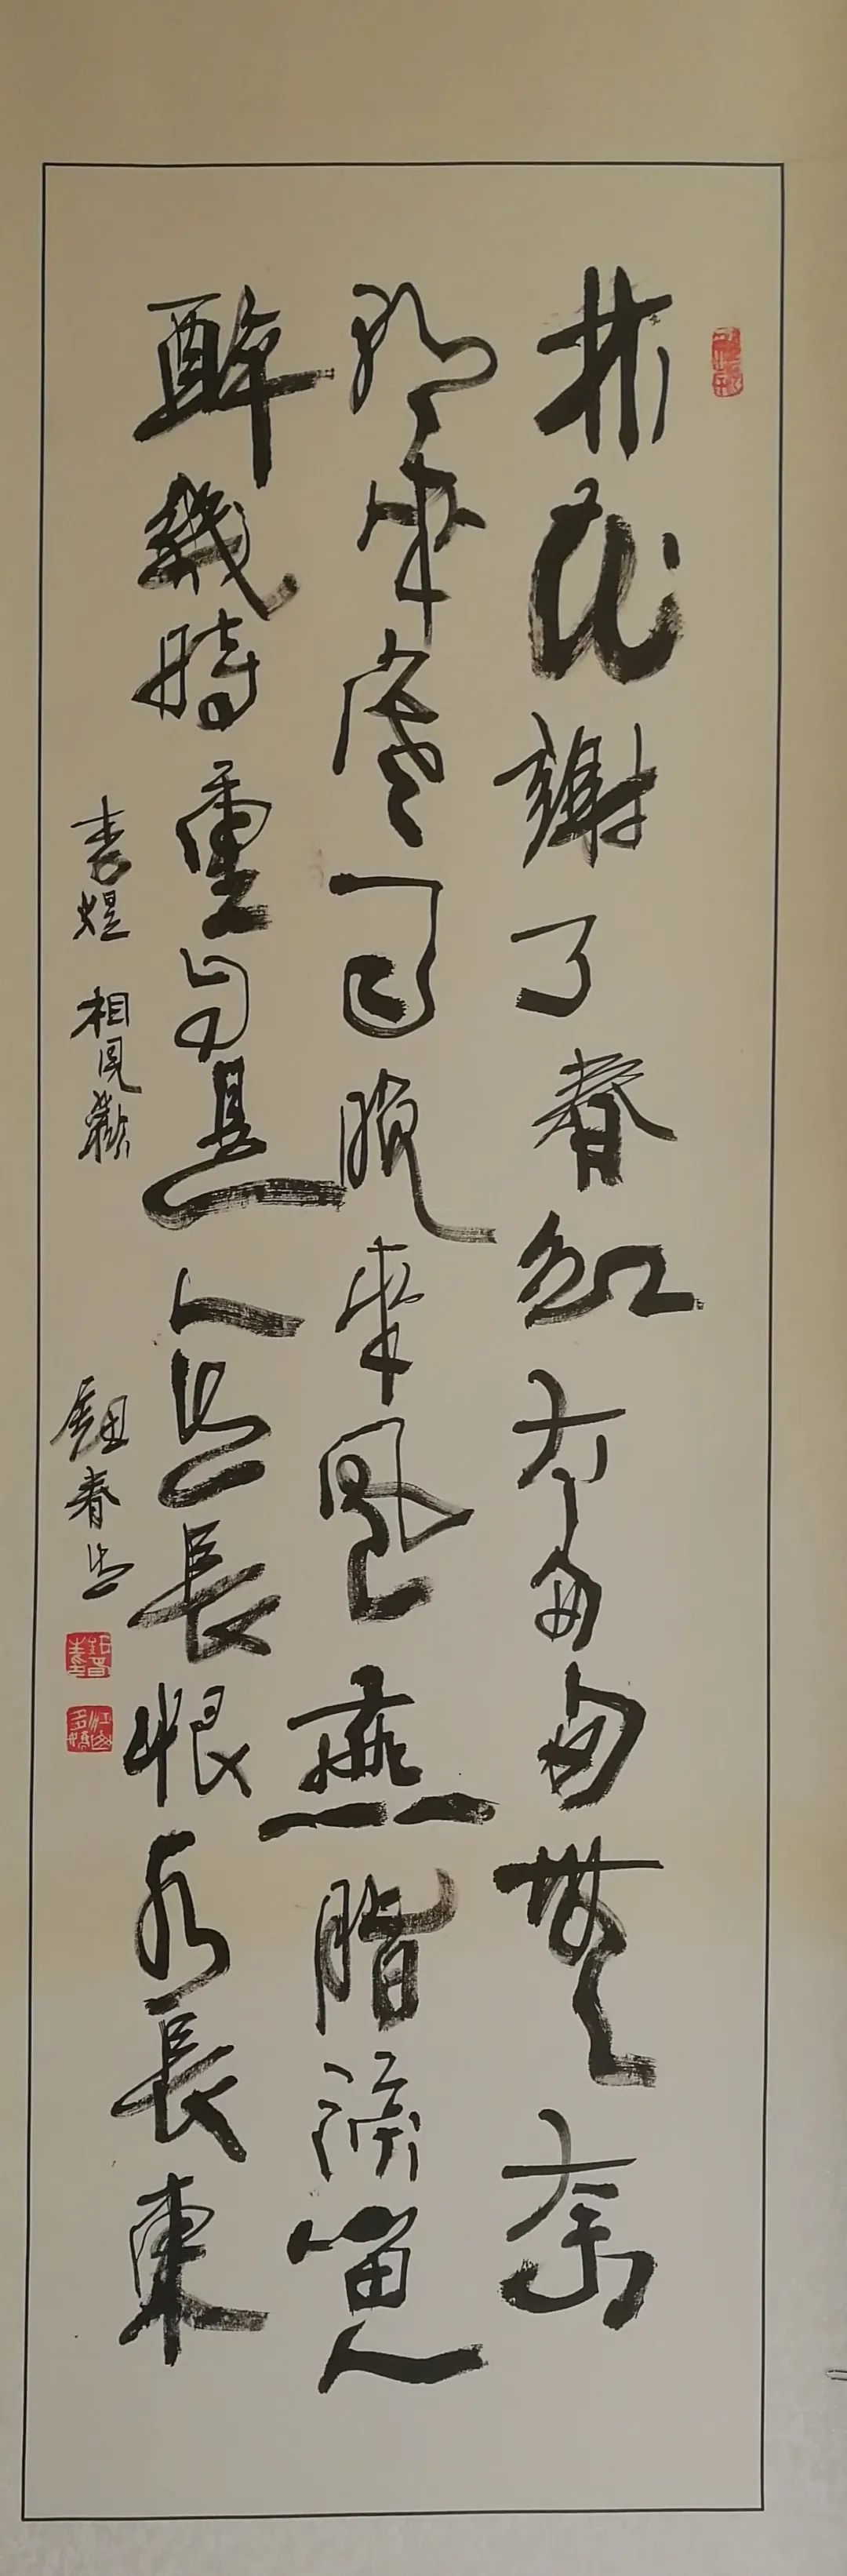 林花謝了春紅太匆匆無奈
朝來寒雨晚來風燕脂淚留人
醉幾時重自是人生長恨水長東
李煜 相見歡 鈕春生
江山多嬌